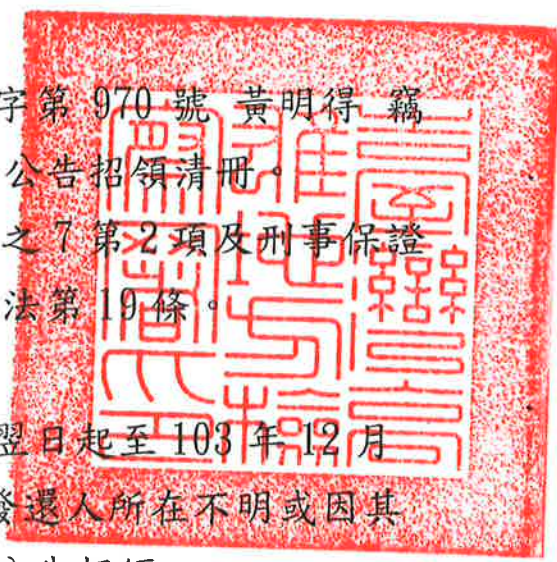 字第 970 號 黃明得 竊
公告招領清冊。
之 7 第 2 項及刑事保證
法第 19 條。
翌日起至 103 年 12 月
發還人所在不明或因其
臺灣高雄地方檢察署印